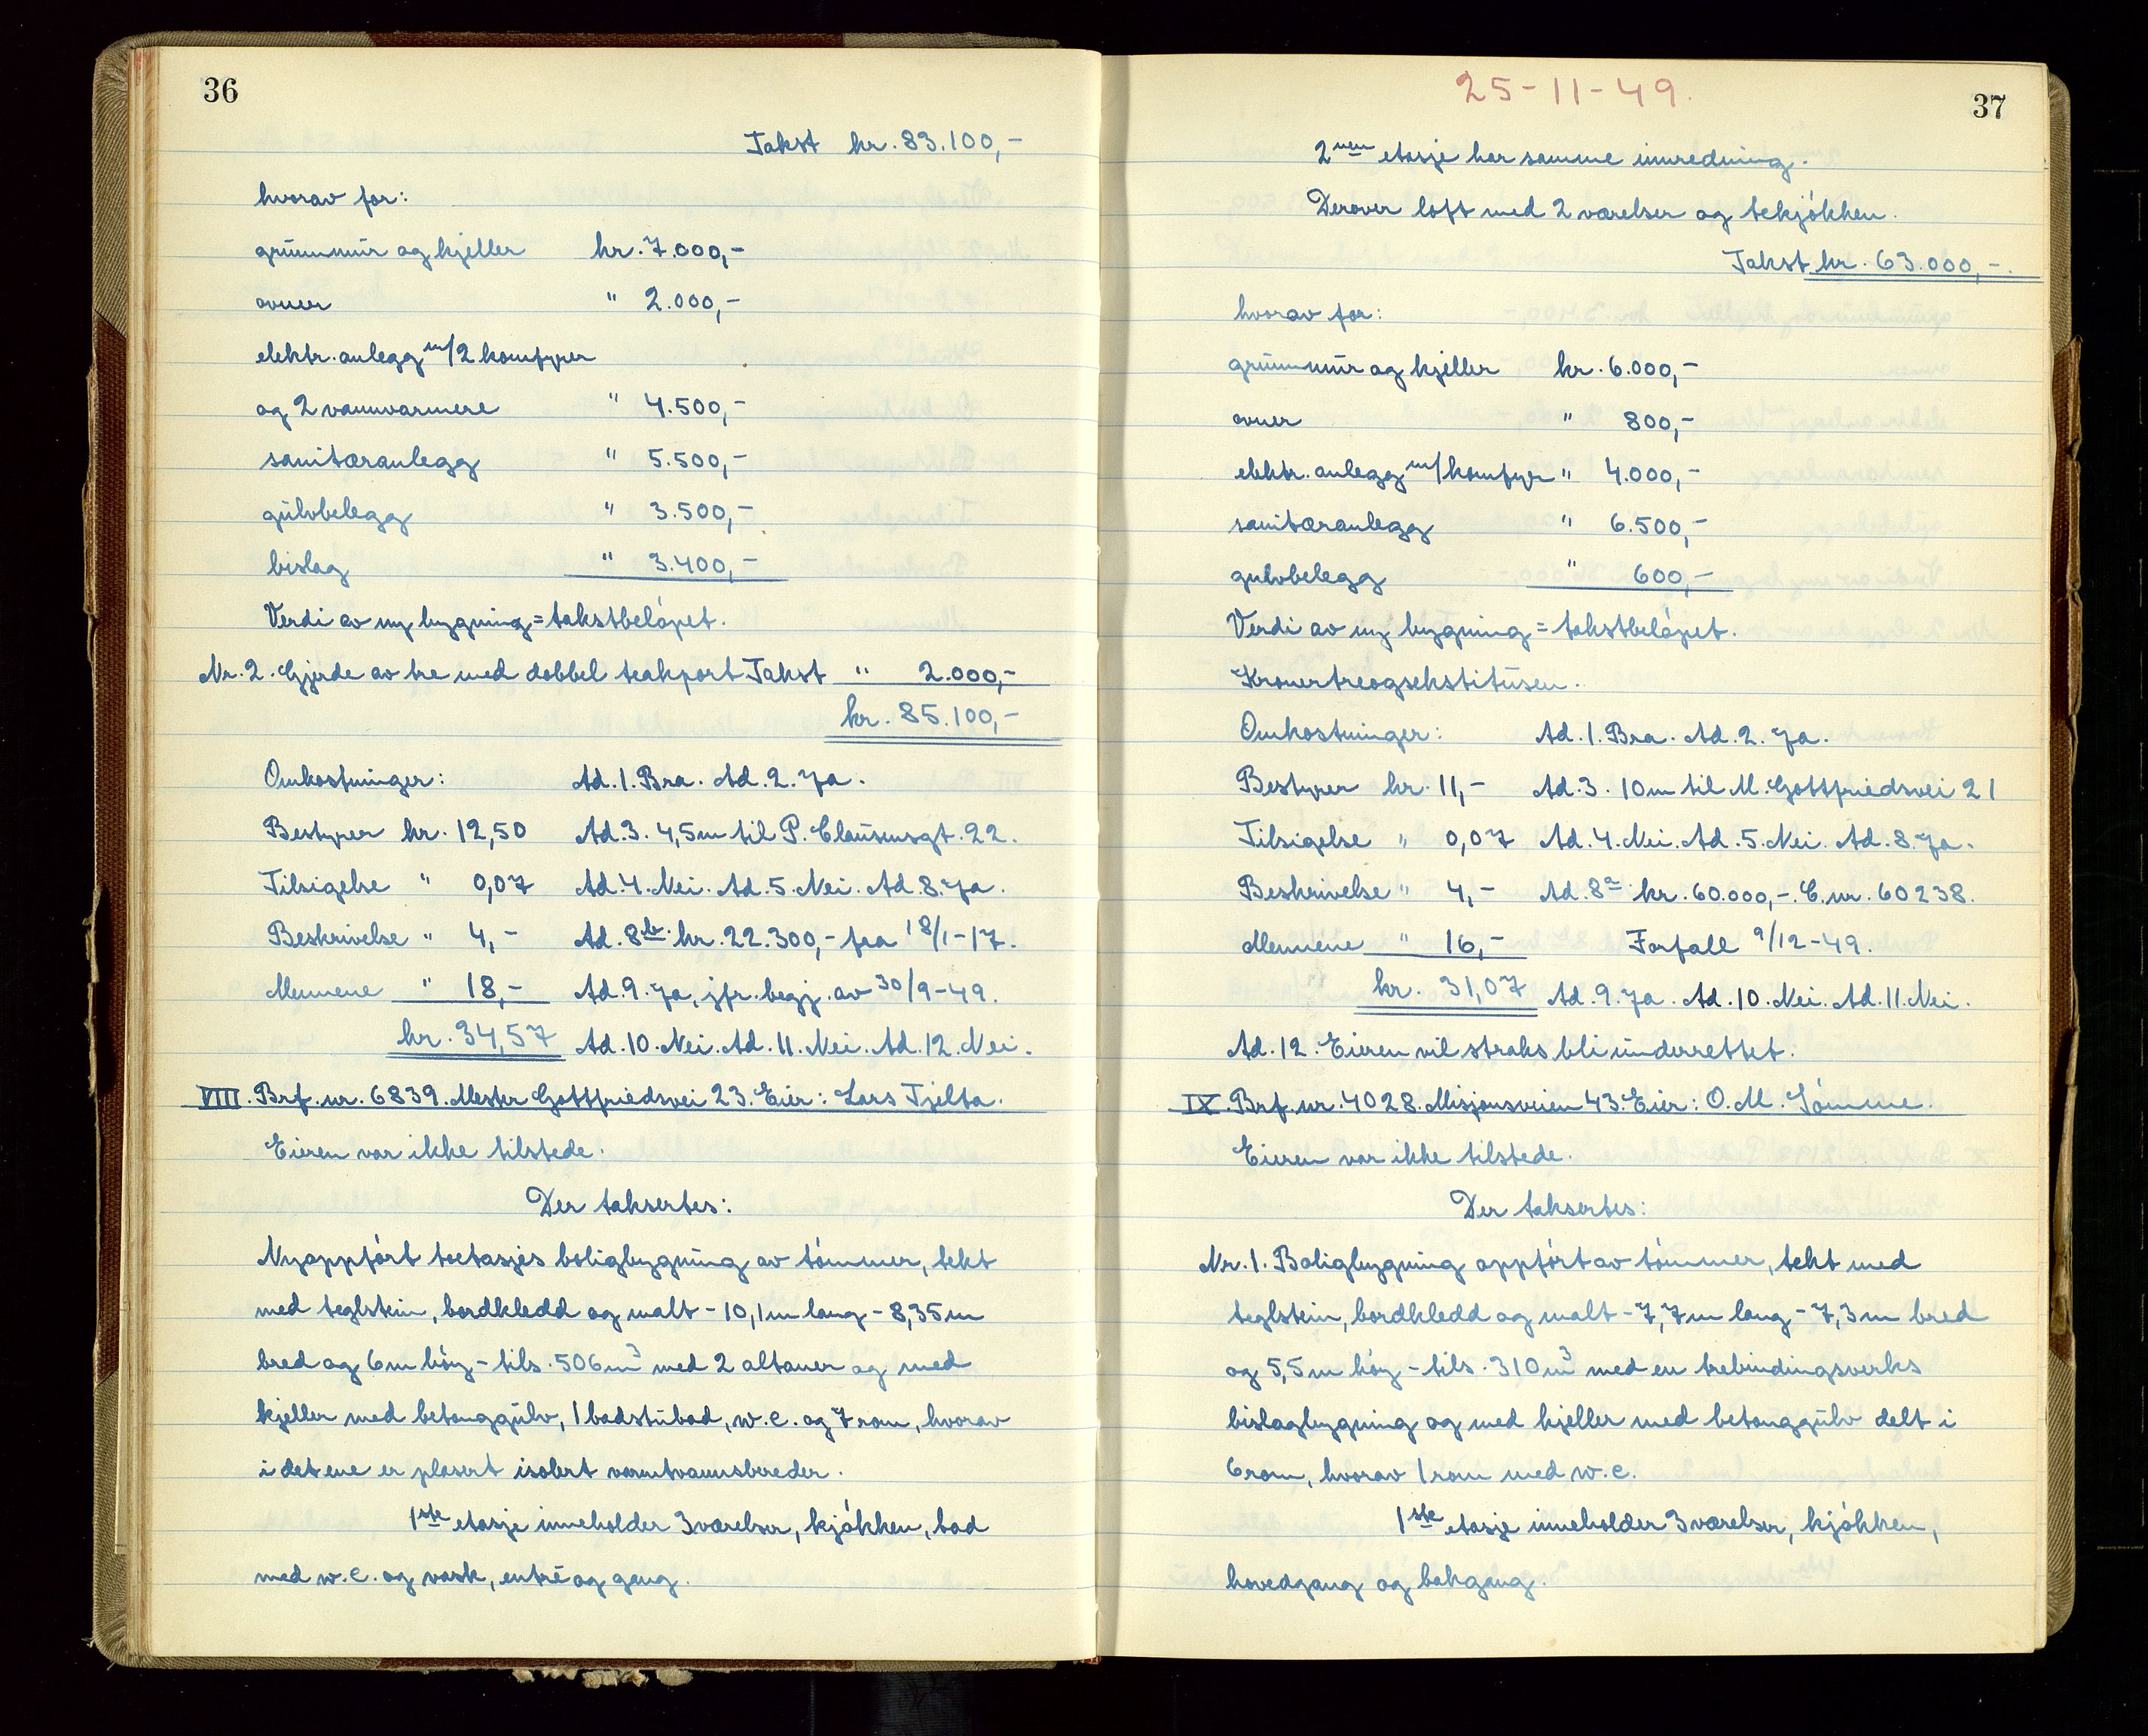 36
Takst kr. 83.100,-
hvorav for:
grunnmur og kjeller kr. 7.000,-
ovner " 2.000,-
elektr. anlegg m/2 komfyrer
og 2 vannvarmere " 4.500,-
sanitæranlegg " 5.500,-
gulvbelegg " 3.500,-
bislag " 3.400,-
Verdi av ny bygning = takstbeløpet.
Nr. 2. Gjerde av tre med dobbel teakport Takst " 2.000,-
kr. 85.100,-
Omkostninger: Ad. 1. Bra. Ad. 2. Ja.
Bestyrer kr. 12,50 Ad. 3. 4,5m til P. Clausensgt. 22.
Tilsigelse " 0,07 Ad. 4. Nei. Ad. 5. Nei. Ad. 8. Ja.
Beskrivelse " 4,- Ad. 8b. kr. 22.300,- fra 18/1-17.
Mennene " 18,- Ad. 9. Ja, jfr. begj. av 30/9-49.
kr. 34,57 Ad. 10. Nei. Ad. 11. Nei. Ad. 12. Nei.
VIII. Brf. nr. 6839. Mester Gottfriedsvei 23. Eier: Lars Tjelta.
Eieren var ikke tilstede.
Der taksertes:
Nyoppført toetasjes boligbygning av tømmer, tekt
med teglstein, bordkledd og malt - 10,1m lang - 8,35m
bred og 6m høy - tils. 506m³ med 2 altaner og med
kjeller med betonggulv, 1 badstubad, w.c. og 7 rom, hvorav
i det ene er plasert isolert varmtvannsbereder.
1ste etasje inneholder 3 værelser, kjøkken, bad
med w.c. og vask, entré og gang.
25-11-49.
37
2nen etasje har samme innredning.
Derover loft med 2 værelser og tekjøkken.
Takst kr. 63.000,-.
hvorav for:
grunnmur og kjeller kr. 6.000,-
ovner " 800,-
elektr. anlegg m/komfyr " 4.000,-
sanitæranlegg " 6.500,-
gulvbelegg " 600,-
Verdi av ny bygning = takstbeløpet.
Kronertreogsekstitusen.
Omkostninger: Ad. 1. Bra. Ad. 2. Ja.
Bestyrer kr. 11,- Ad. 3. 10m til M. Gottfriedsvei 21
Tilsigelse " 0,07 Ad. 4. Nei. Ad. 5. Nei. Ad. 8. Ja.
Beskrivelse " 4,- Ad. 8a. kr. 60.000,-. C. nr. 60238.
Mennene " 16,- Forfall 9/12-49.
kr. 31,07 Ad. 9. Ja. Ad. 10. Nei. Ad. 11. Nei.
Ad. 12. Eieren vil straks bli underrettet.
IX. Brf. nr. 4028. Misjonsveien 43. Eier: O. M. Sømme.
Eieren var ikke tilstede.
Der taksertes:
Nr. 1. Boligbygning oppført av tømmer, tekt med
teglstein, bordkledd og malt - 7,7m lang - 7,3m bred
og 5,5m høy - tils. 310m³ med en trebindingsverks
bislagbygning og med kjeller med betonggulv delt i
6 rom, hvorav 1 rom med w.c.
1ste etasje inneholder 3 værelser, kjøkken,
hovedgang og bakgang.